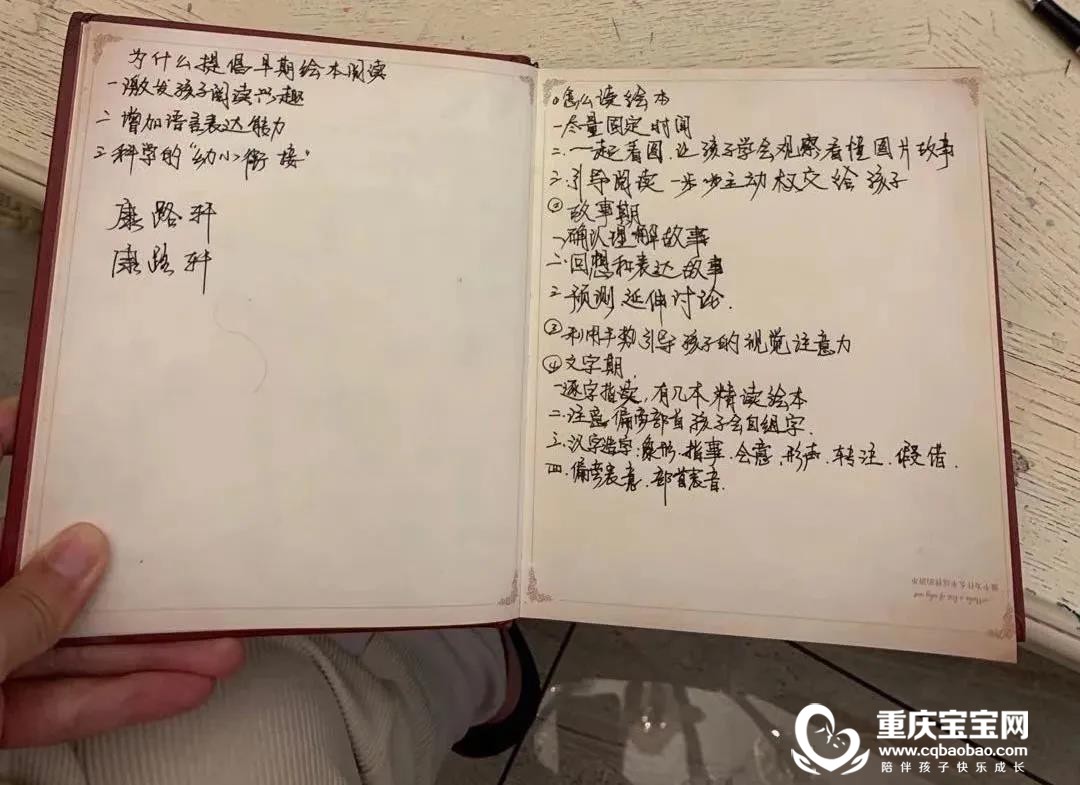 为什么提倡早期绘本阅读
一激发孩子阅读兴趣
二增加语言表达能力
三科学的"幼小衔接"
康路轩
康路轩
怎么读绘本
一尽量固定时间
二.一起看图.让孩子学会观察看懂图片故事
三.引导阅读 一步步主动权交给孩子
②故事期
一确认理解故事
二回想和表达故事
三预测 延伸讨论.
③利用手势引导孩子的视觉注意力
④文字期.
一逐字指读,有几本精读绘本
二.注意偏旁部首孩子会自组字.
三.汉字造字:象形.指事.会意.形声.转注.假借.
四.偏旁表意.部首表音.
重庆宝宝网
www.cqbaobao.com
陪伴孩子快乐成长